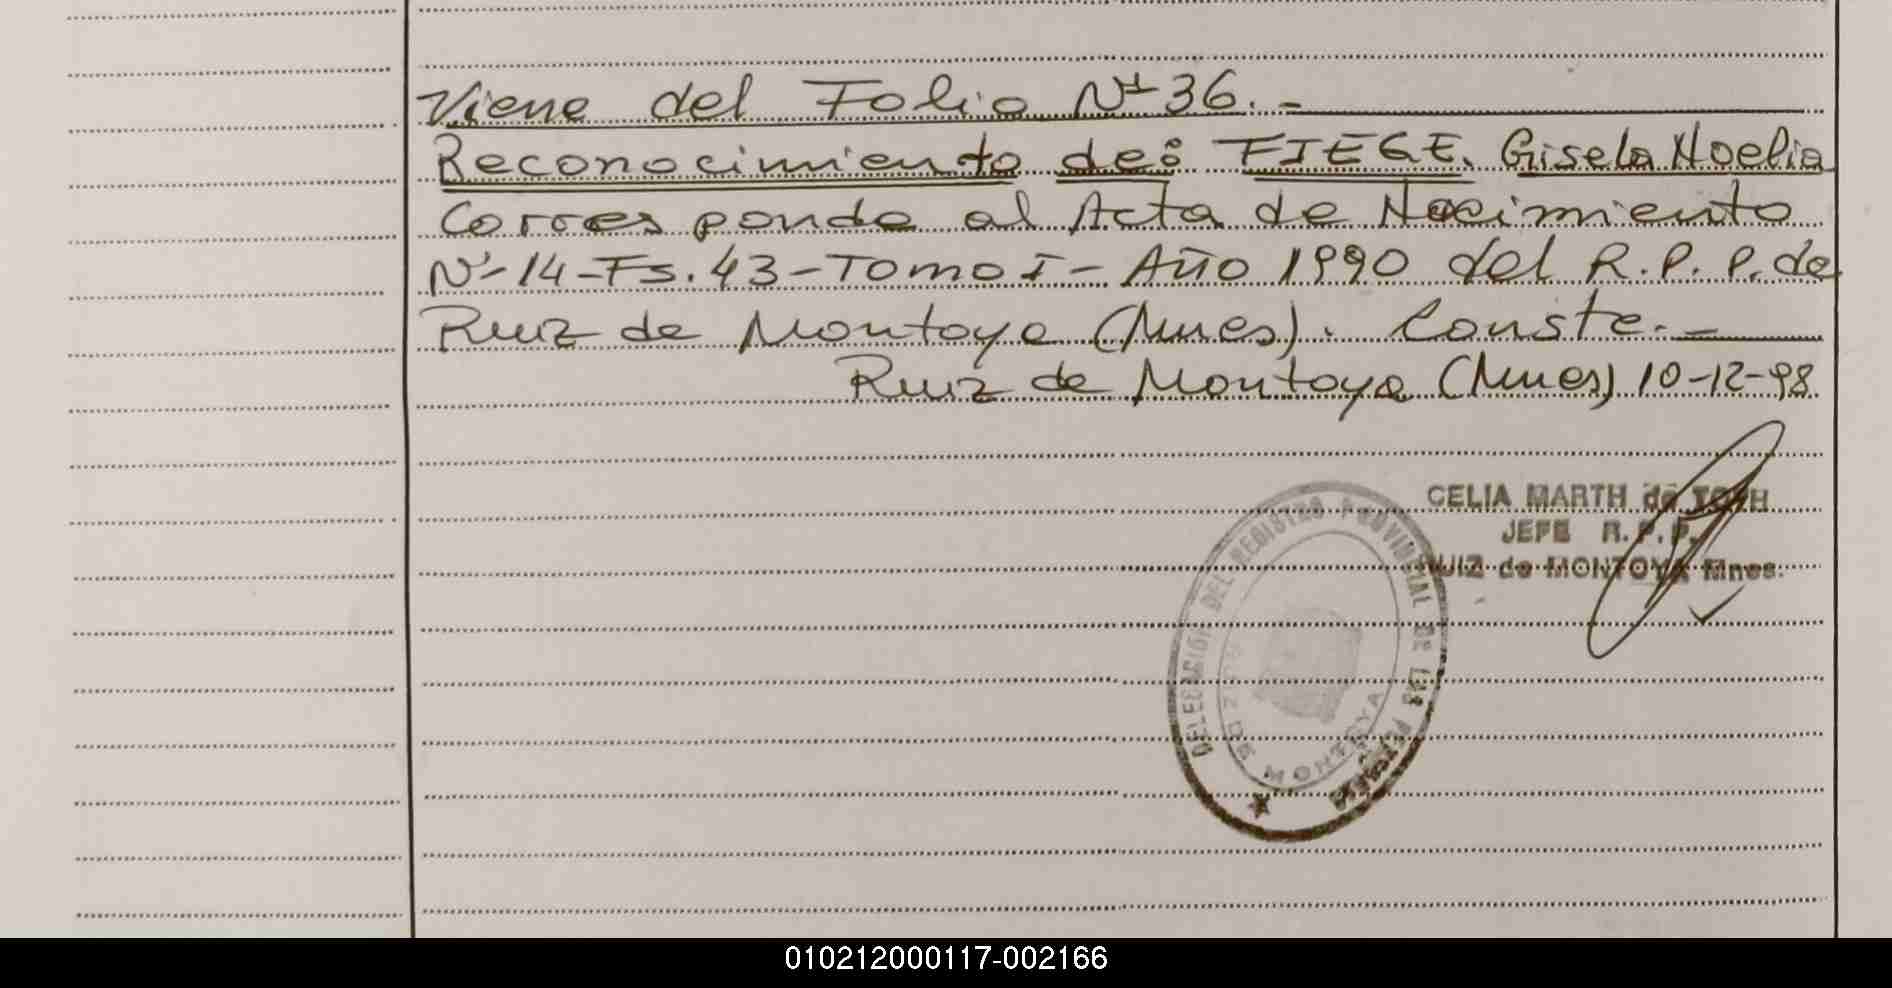 Viene del Folio Nº 36.-
Reconocimiento de: FIEGE, Gisela Noelia
Corresponde al Acta de Nacimiento
Nº-14-Fs.43-Tomo I-Año 1990 del R.P.P. de
Ruiz de Montoya (Mnes). Conste.-
Ruiz de Montoya (Mnes) 10-12-98.
CELIA MARTH de
JEFE R.P.P.
RUIZ de MONTOYA Mnes.
DELEGACIÓN DEL REGISTRO PROVINCIAL DE LAS PERSONAS
RUIZ DE MONTOYA
010212000117-002166